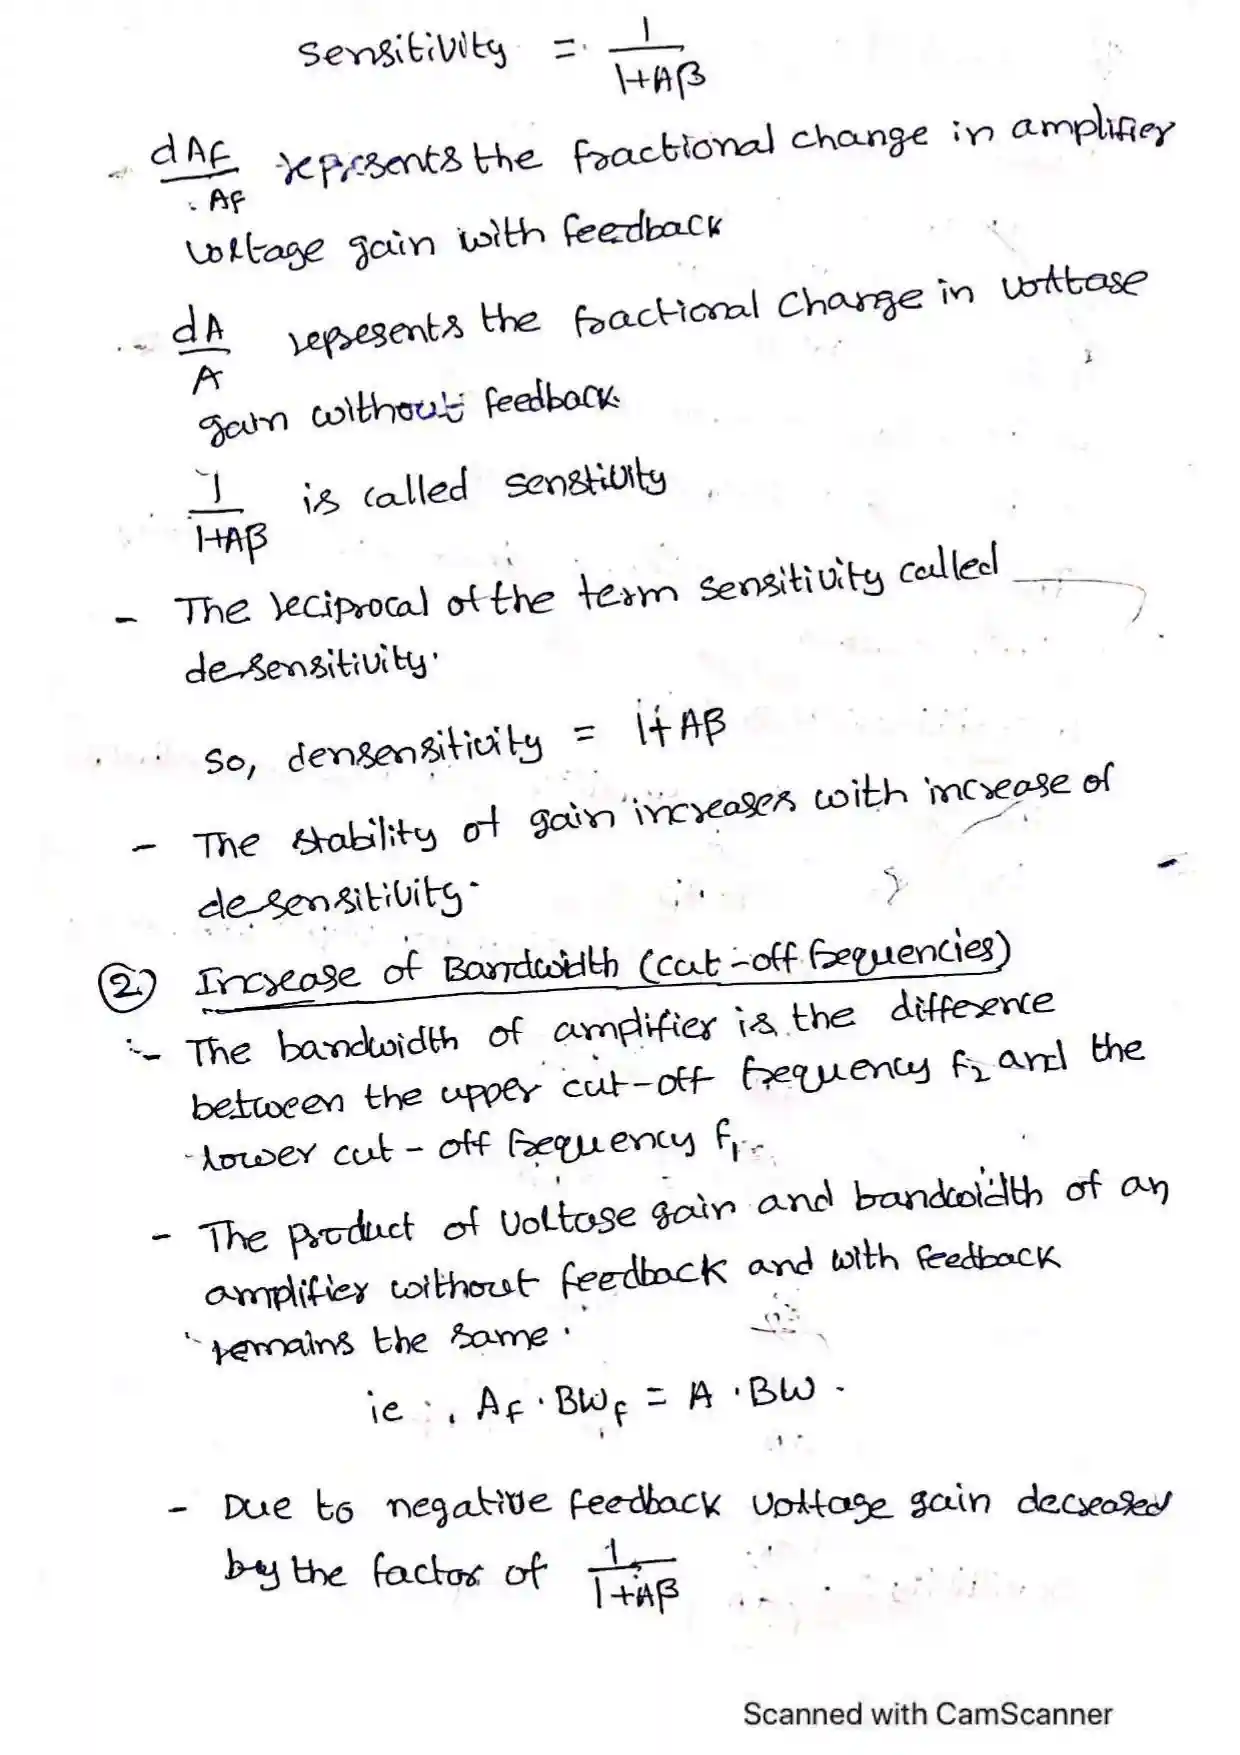 Sensitivity = 1/(1+Aβ)
- dAf/Af represents the fractional change in amplifier
voltage gain with feedback
- dA/A represents the fractional change in voltage
gain without feedback.
1/(1+Aβ) is called senstivity
- The reciprocal of the term sensitivity called
de-sensitivity.
So, densensitivity = 1+Aβ
- The stability of gain increases with increase of
de-sensitivity.
② Increase of Bandwidth (cut-off frequencies)
- The bandwidth of amplifier is the difference
between the upper cut-off frequency f2 and the
lower cut-off frequency f1.
- The product of voltage gain and bandwidth of an
amplifier without feedback and with feedback
remains the same.
ie., Af . BWf = A . BW.
- Due to negative feedback voltage gain decreased
by the factor of 1/(1+Aβ)
Scanned with CamScanner